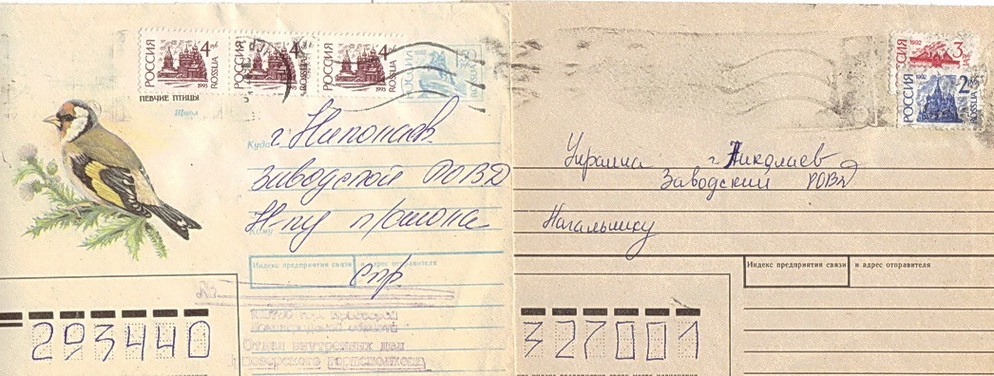 РОССИЯ 4 руб 1993 ROSSIJA
РОССИЯ 4 руб 1993 ROSSIJA
РОССИЯ 4 руб 1993 ROSSIJA
50
ПЕВЧИЕ ПТИЦЫ
Щегол
Куда г. Николаев
Заводской РОВД
Кому Н-ку п/стола
спр.
Индекс предприятия связи и адрес отправителя
293440
№
области
Отдел внутренних дел
горисполкома
РОССИЯ 1992 3
РОССИЯ 1992 2 ROSSIJA
Украина г. Николаев
Заводский РОВД
Начальнику
Индекс предприятия связи и адрес отправителя
327001